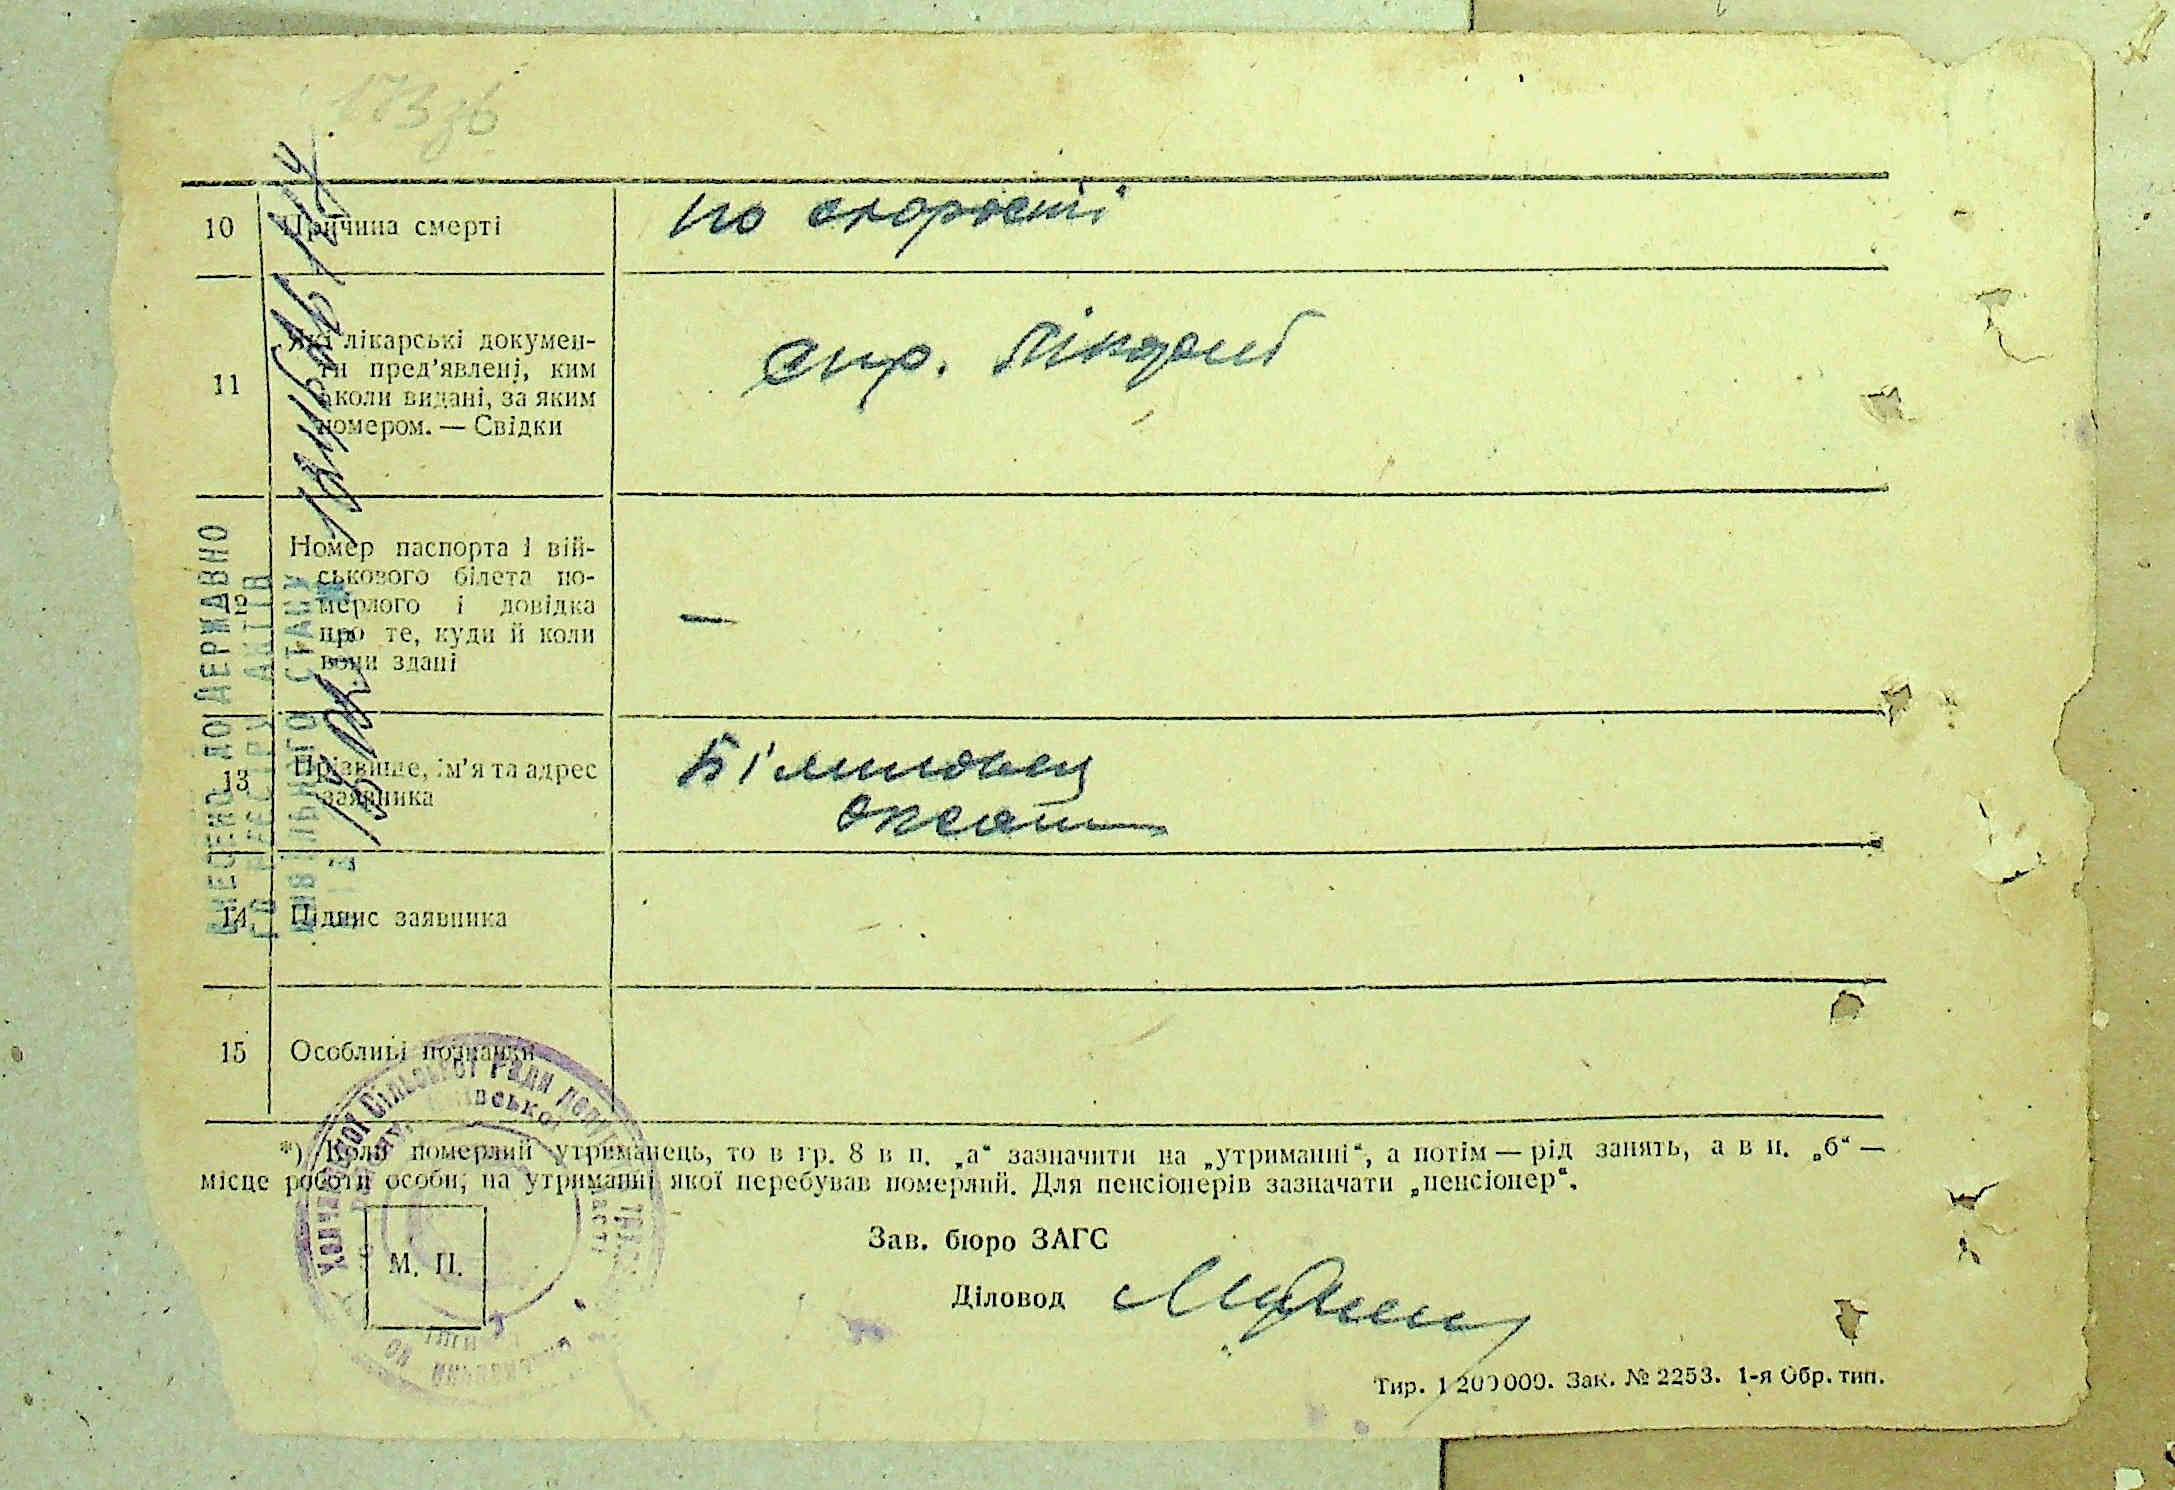 173 зв
10 Причина смерті
по старості
11 Які лікарські докумен-
ти пред'явлені, ким
і коли видані, за яким
номером. — Свідки
спр.
12 Номер паспорта і вій-
ськового білета по-
мерлого і довідка
про те, куди й коли
вони здані
—
13 Прізвище, ім'я та адрес
заявника
14 Підпис заявника
15 Особливі познанки
*) Коли померлий утриманець, то в гр. 8 в п. „а“ зазначити на „утриманні“, а потім — рід занять, а в п. „б“ —
місце роботи особи, на утриманні якої перебував померлий. Для пенсіонерів зазначати „пенсіонер“.
Зав. бюро ЗАГС
М. П.
Діловод
Тир. 1 200 000. Зак. № 2253. 1-я Обр. тип.
ВНЕСЕНО ДО ДЕРЖАВНО
ГО РЕЄСТРУ АКТІВ
ЦИВІЛЬНОГО СТАНУ
Сільської Ради